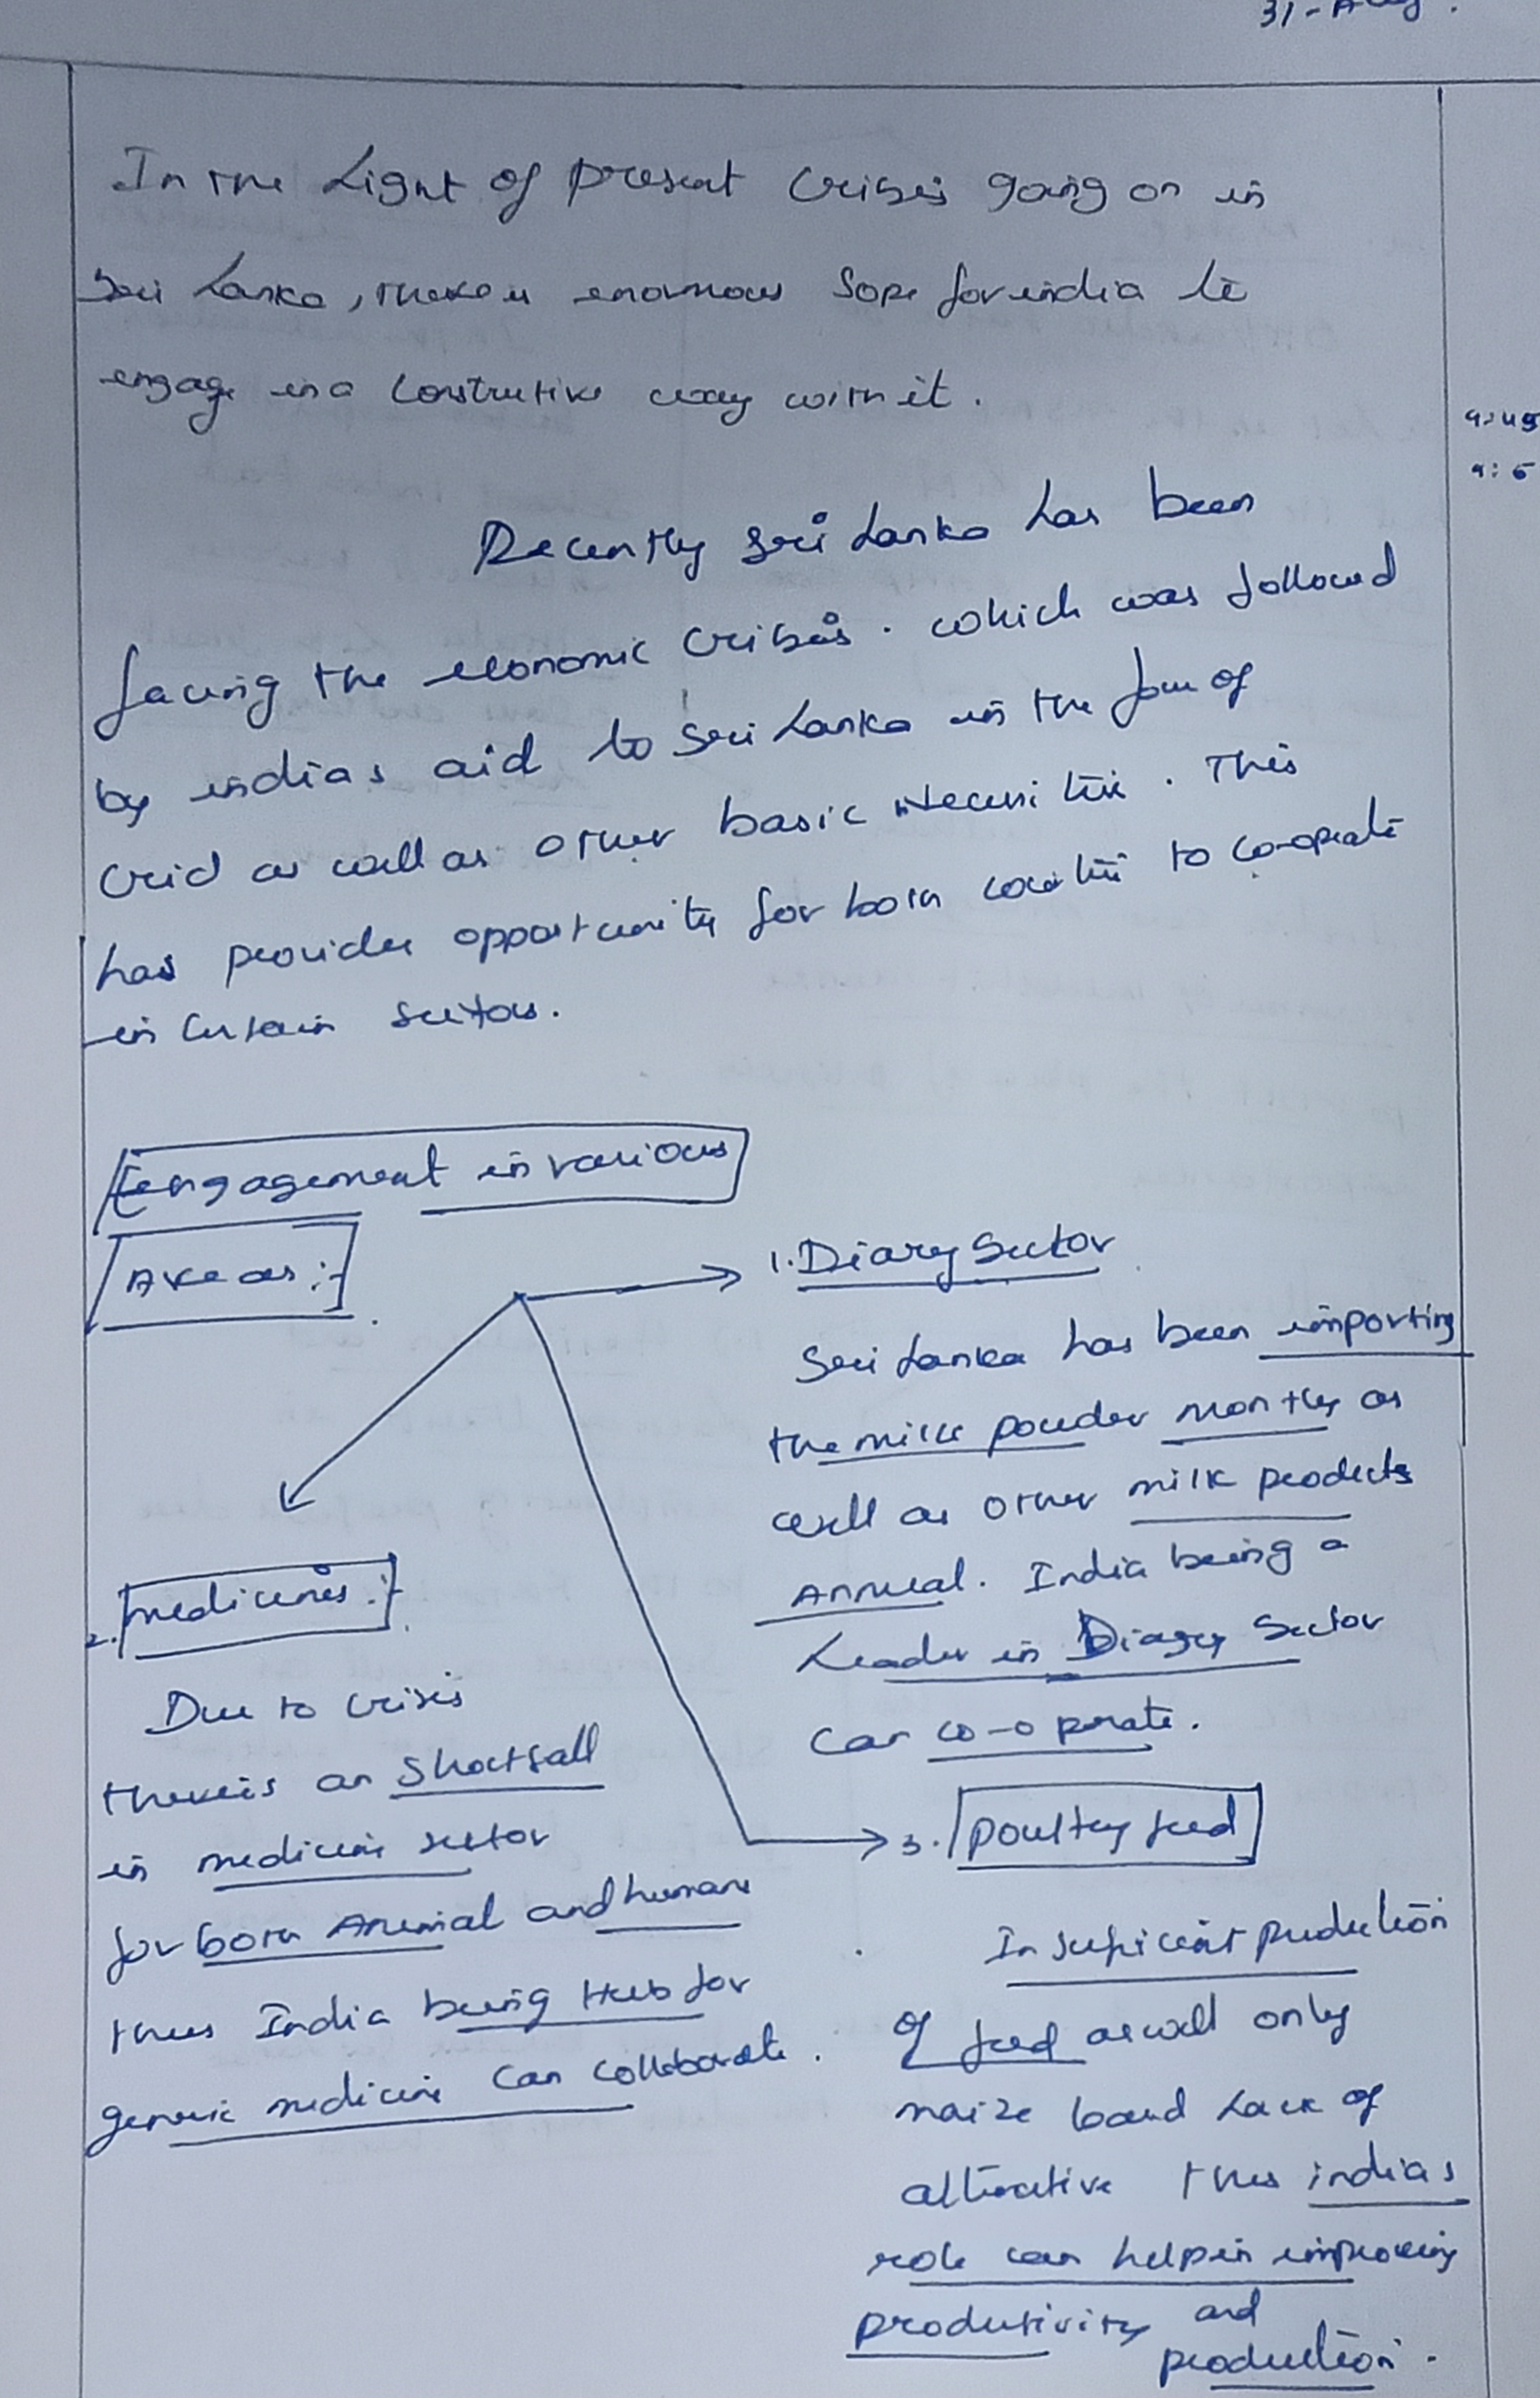 31-Aug.
In the Light of present crisis going on in
Sri Lanka, there is enormous Sope for india to
engage in a constructive way with it.
9:45
Recently Sri Lanka has been
facing the economic crisis. which was followed
by indias aid to Sri Lanka in the form of
as well as other basic necessities. This
has provides opportunity for both to co-operate
in certain sectors.
Engagement in various
Areas :-
1. Diary Sector
Sri Lanka has been importing
the milk powder monthly as
well as other milk products
Annual. India being a
Leader in Diary Sector
can co-operate.
2. medicines :-
Due to crisis
there is an Shortfall
in medicine sector
for both Animal and human
thus India being Hub for
generic medicine can collaborate.
3. poultry feed
Insuficient production
of feed as well only
maize based Lack of
alternative thus indias
role can help in improving
productivity and
production.